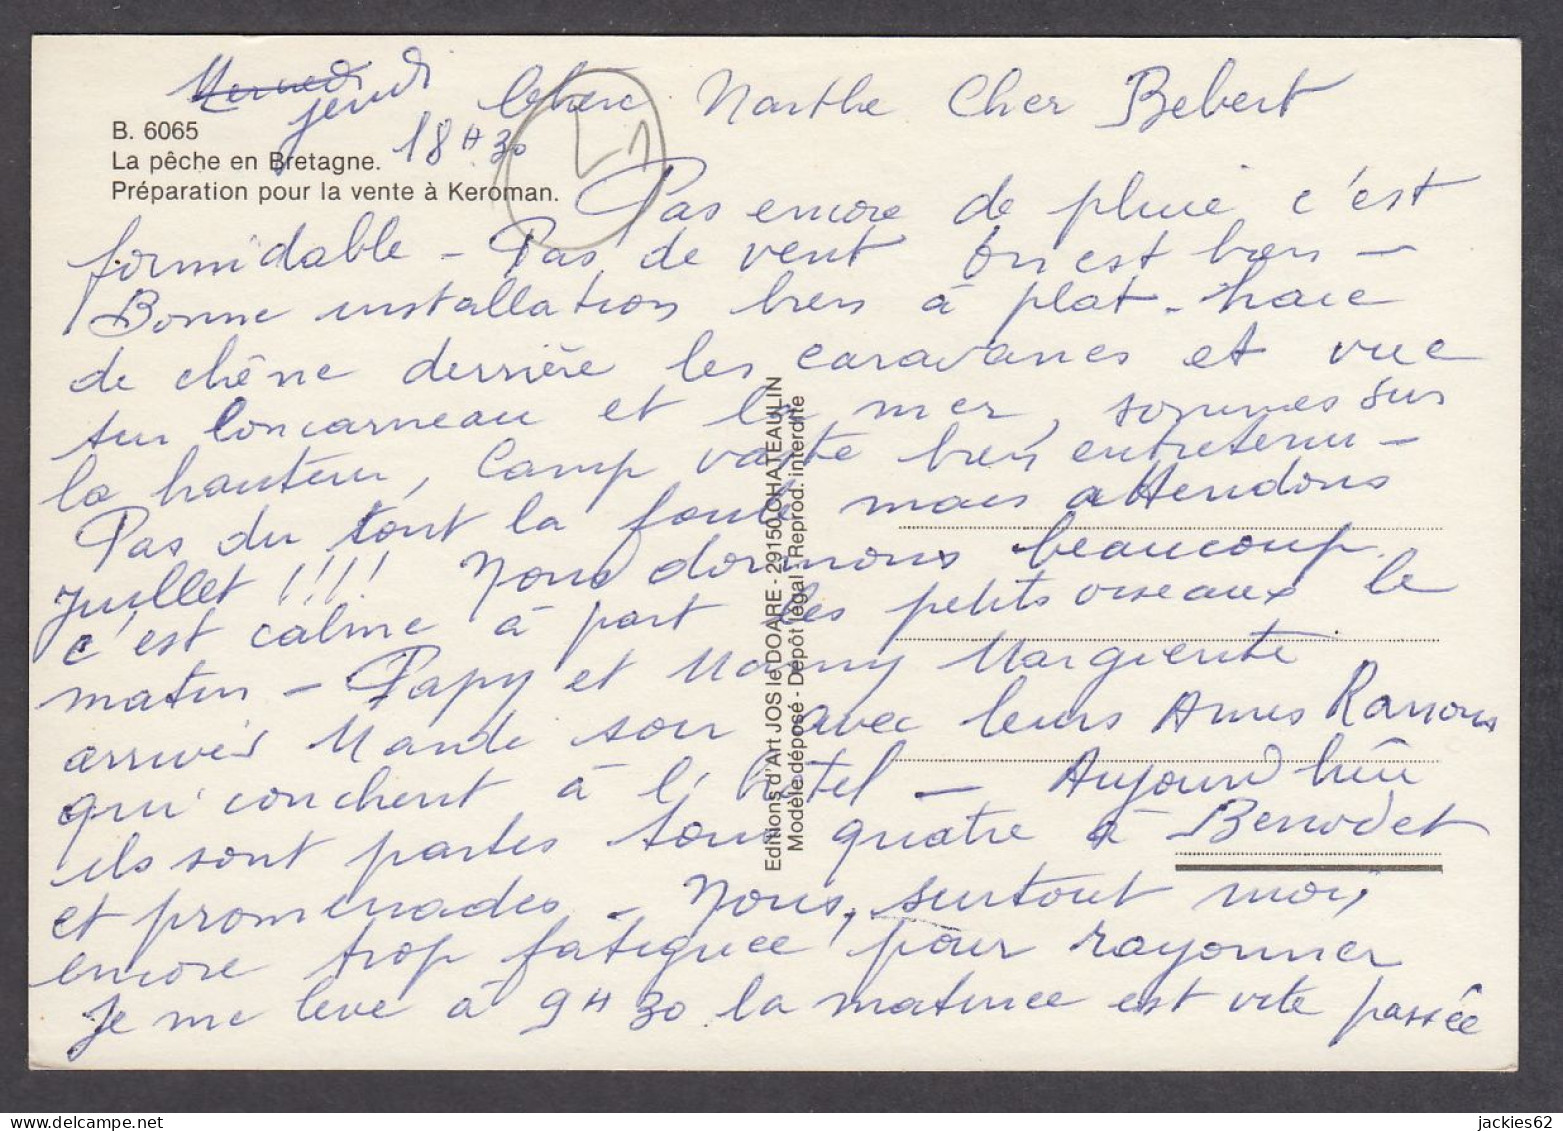 Mercredi
jeudi
18 H 30
Chère Marthe Cher Bebert
B. 6065
La pêche en Bretagne.
Préparation pour la vente à Keroman.
Pas encore de pluie c'est
formidable - Pas de vent On est bien -
Bonne installation bien à plat - haie
de chêne derrière les caravanes et vue
sur Concarneau et la mer, sommes sur
la hauteur, Camp vaste bien entretenu -
Pas du tout la foule mais attendons
Juillet !!!! Nous dormons beaucoup
c'est calme à part les petits oiseaux le
matin - Papy et Mamy Marguerite
arrivés Mardi soir avec leurs Amis
qui couchent à l'hôtel - Aujourd'hui
ils sont partis tous quatre à Benodet
et promenades - Nous, surtout moi,
encore trop fatiguée, pour rayonner
Je me lève à 9 H 30 la matinée est vite passée
Editions d'Art JOS le DOARE - 29150 CHATEAULIN
Modèle déposé - Dépôt légal - Reprod. interdite
jackies62